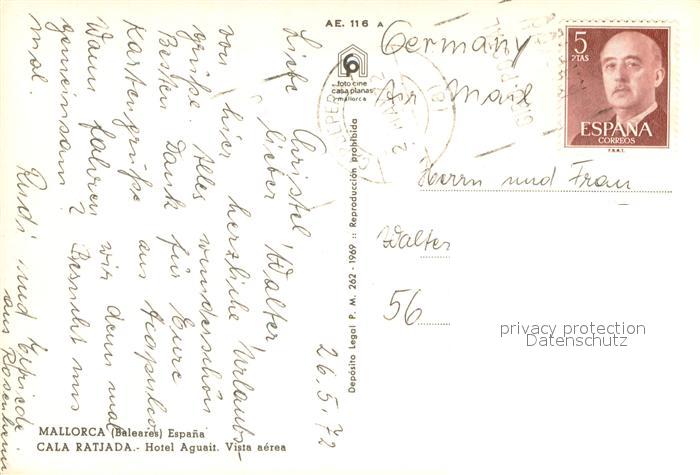 AE. 116 A
foto cine
casa planas
mallorca
Germany
Air Mail
5
PTAS
ESPAÑA
CORREOS
F.N.M.T.
Herrn und Frau
Walter
56
privacy protection
Datenschutz
26.5.72
Liebe Christel
lieber Walter,
von hier herzliche Urlaubs-
grüße. Alles wunderschön
Besten Dank für Eure
Kartengrüße aus Acapulco
Wann fahren wir denn mal
gemeinsam? Besucht uns
mal.
Rudi und Elfriede
aus Rosenheim
Depósito Legal P. M. 262 - 1969 :: Reproducción prohibida
MALLORCA (Baleares) España
CALA RATJADA.- Hotel Aguait. Vista aérea